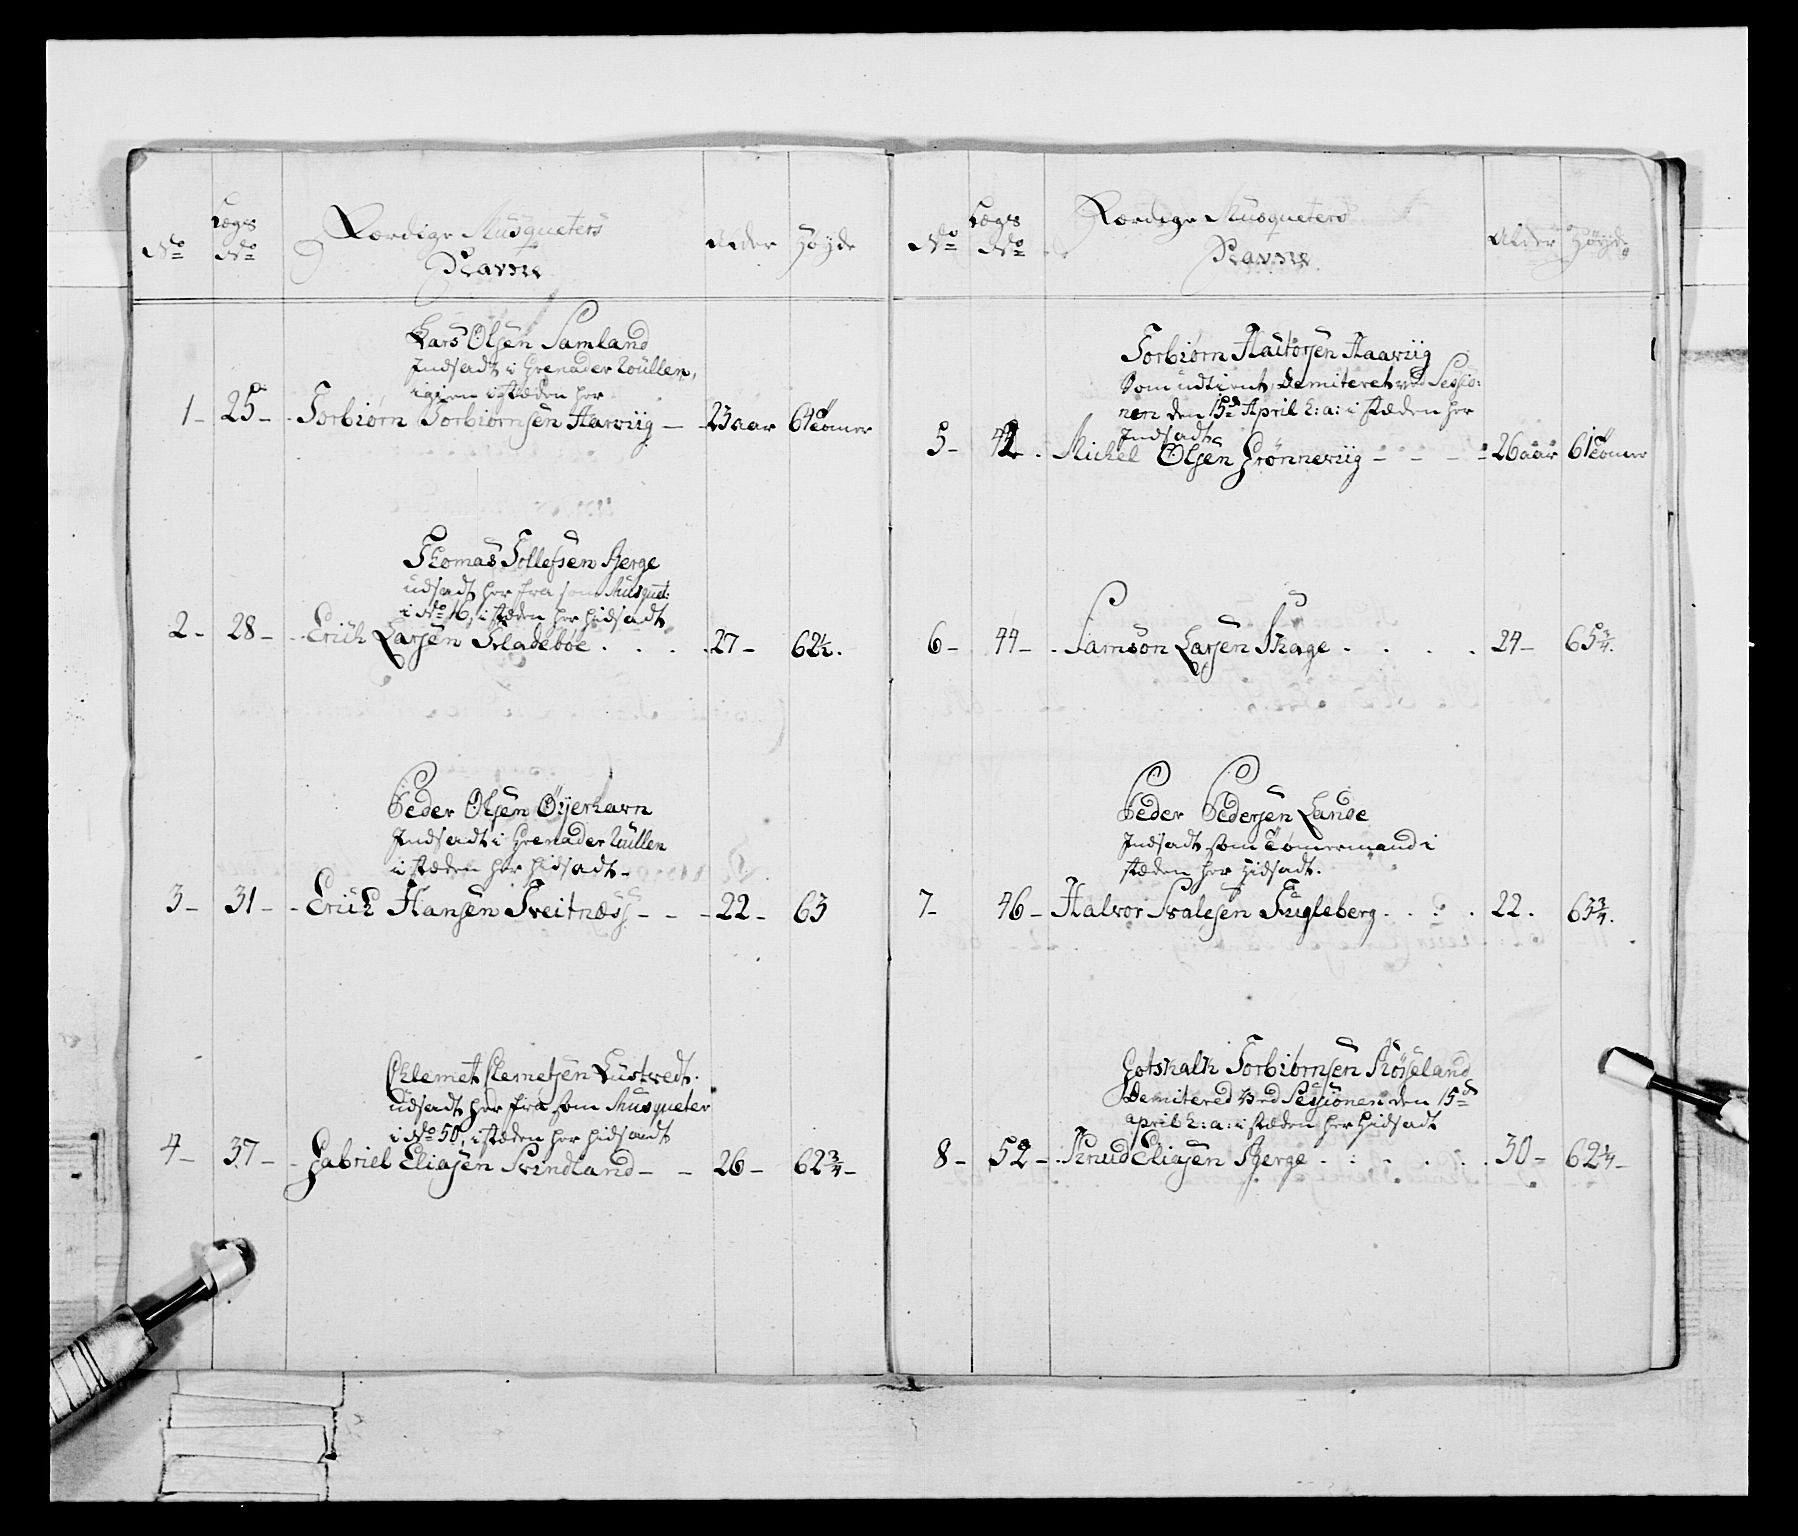 No
Lægs
No
Færdige Musqueters
Navne
Alder
Høyde
Lars Olsen Samland
Indsadt i Grenader Roullen,
igien i stæden her
1- 25- Torbiørn Torbiørnsen Haarviig 23 aar 64 Tomer
Thomas Tollefsen Berge
udsadt her fra som Musquet:
i No 16, i stæden her hidsadt
2- 28- Erich Larsen Fladebøe 27- 62½.
Peder Olsen Öyerhavn
Indsadt i Grenader Rullen
i stæden her hidsadt-
3- 31- Erich Hansen Sveitnæss 22- 63
Clemet Clemetsen Lustvedt
udsadt her fra som Musqueter
i No 50, i stæden her hidsadt
4- 37- Gabriel Eliasen Svindland 26- 62¾-
No
Lægs
No
Færdige Musqueters
Navne
Alder
Høyde
Torbiørn Haltorsen Haarviig
Som udtient, Demiteret ved Sessio:
nen den 15de April h: a: i stæden her
Indsadt
5- 42. Michel Olsen Grönneviig 26 aar 61 Tomer
6- 44- Samson Larsen Skage 24- 65¾.
Peder Pedersen Lande
Indsadt som Tömermand i
stæden her hidsadt.
7- 46- Halvor Salesen Fugleberg 22. 63¾.
Gotskalk Torbiörnsen Rösseland
Demitered ved Sessionen den 15de
April h: a: i stæden her hidsadt
8- 52- Knud Eliasen Berge 30- 62¾-